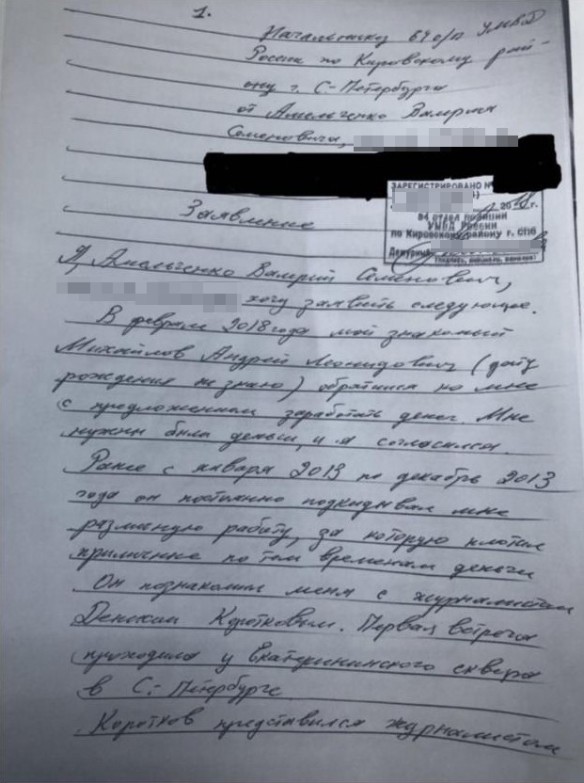 1.
Начальнику 64 о/п УМВД
России по Кировскому рай-
ону г. С-Петербурга
от Амельченко Валерия
Семеновича,
ЗАРЕГИСТРИРОВАНО №
отдел полиции
УМВД РОССИИ
по Кировскому району г. СПб
Дежурный
Заявление
Я, Амельченко Валерий Семенович,
хочу заявить следующее.
В феврале 2018 года мой знакомый
Михайлов Андрей Леонидович (дату
рождения не знаю) обратился ко мне
с предложением заработать денег. Мне
нужны были деньги, и я согласился.
Ранее с января 2013 по декабрь 2013
года он постоянно подкидывал мне
разную работу, за которую платил
приличные по тем временам деньги
Он познакомил меня с журналистом
Денисом Коротковым. Первая встреча
проходила у Екатерининского сквера
в С.-Петербурге
Коротков представился журналистом